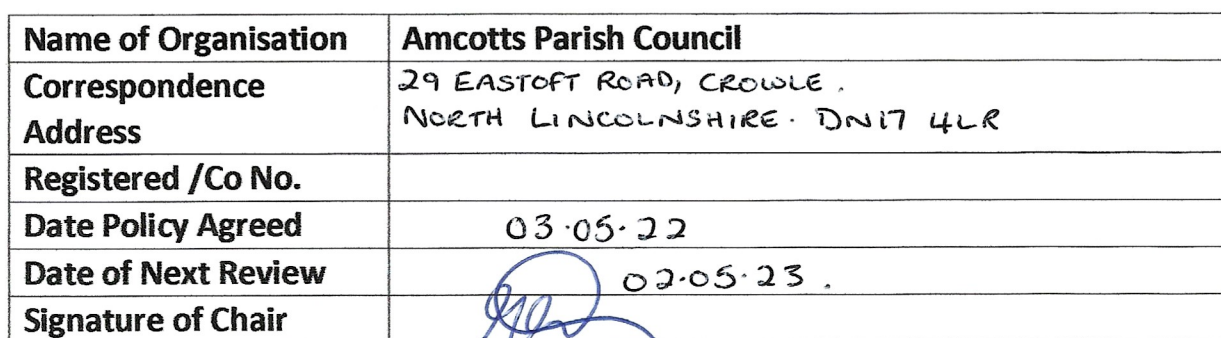 Name of Organisation Amcotts Parish Council
Correspondence 29 EASTOFT ROAD, CROWLE.
Address NORTH LINCOLNSHIRE. DN17 4LR
Registered /Co No.
Date Policy Agreed 03.05.22
Date of Next Review 02.05.23.
Signature of Chair